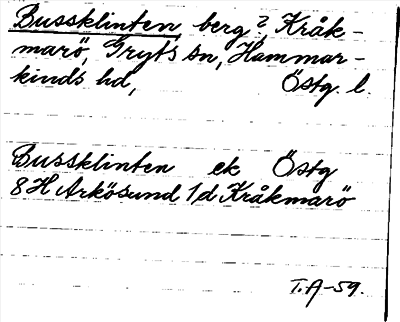 Bussklinten berg?, Kråk-
marö, Gryts sn, Hammar-
kinds hd, Östg. l.
Bussklinten ek Östg
8H Arkösund 1d Kråkmarö
T.A-59.